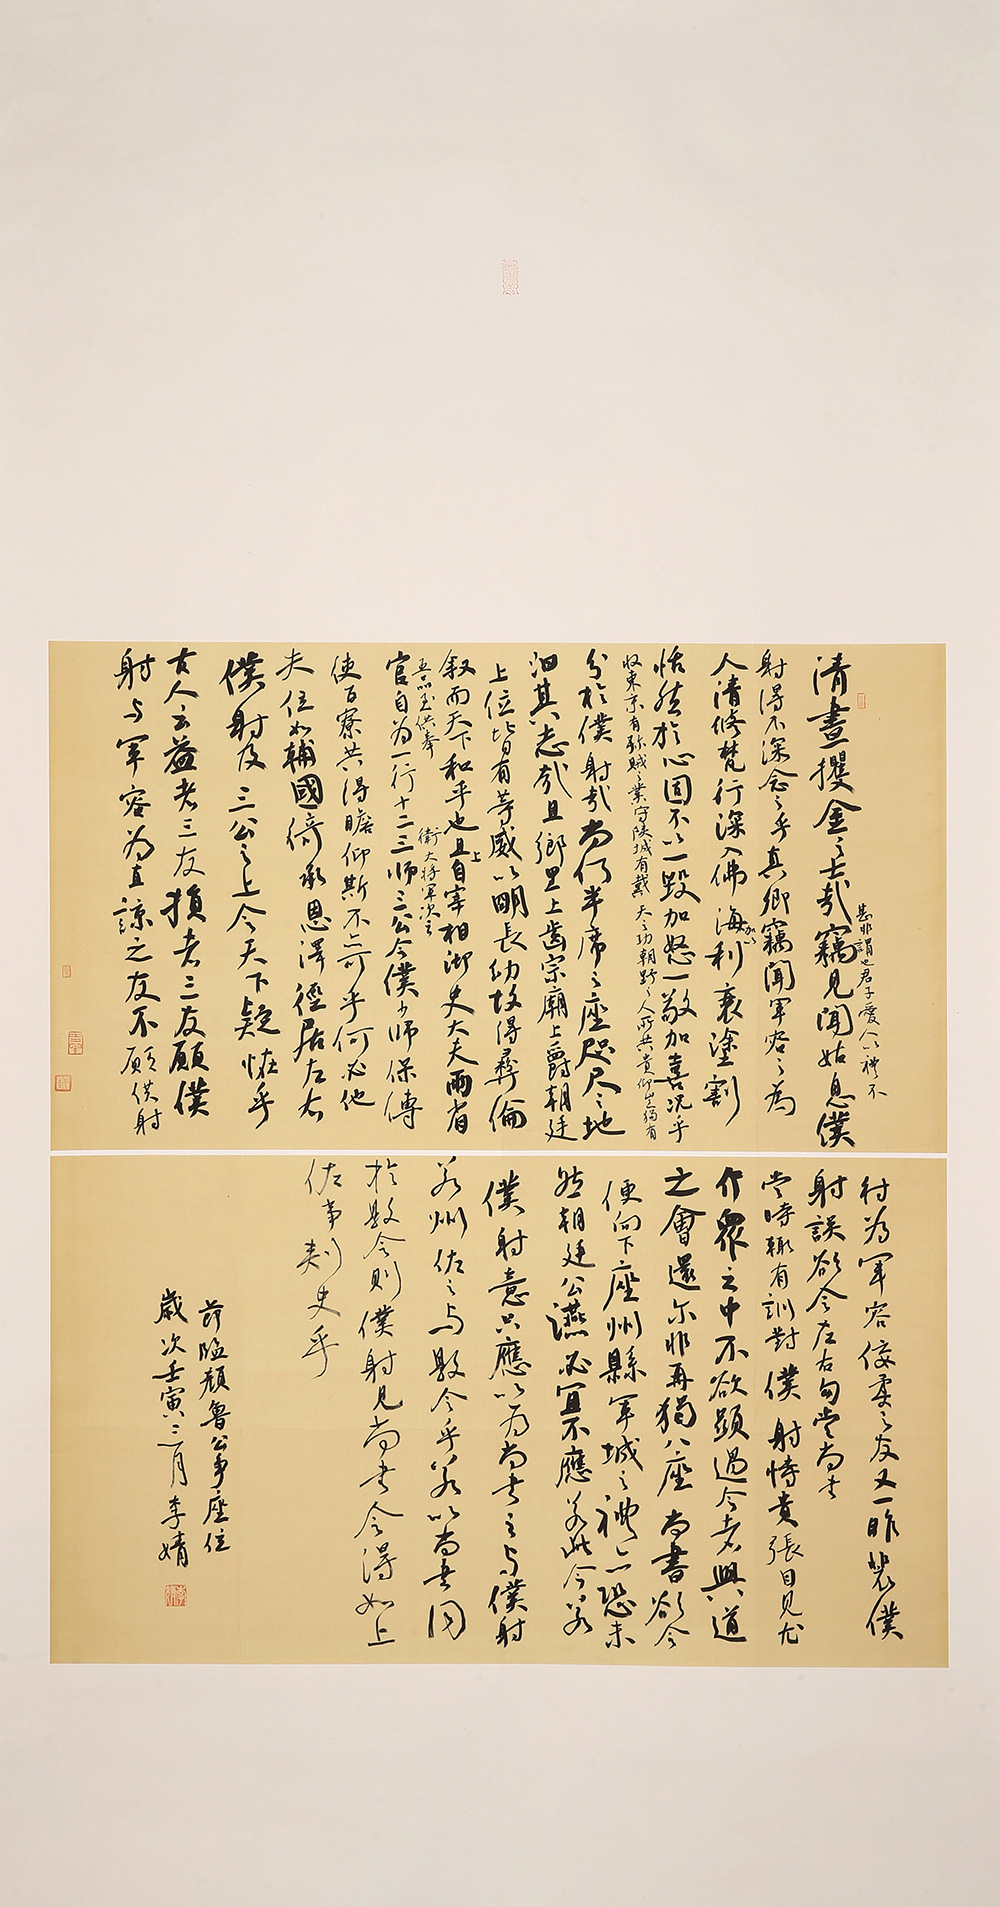 清晝攫金之士哉竊見聞姑息僕
甚非謂也君子愛人以禮不
射得不深念之乎真卿竊聞軍容之為
人清修梵行深入佛海利衰塗割
加以
恬然於心固不以一毀加怒一敬加喜況乎
收東京有殄賊之業守陝城有戴天之功朝野之人所共貴仰豈獨有
分於僕射哉尚何半席之座咫尺之地
汩其志哉且鄉里上齒宗廟上爵朝廷
上位皆有等威以明長幼故得彝倫
叙而天下和平也且上自宰相御史大夫兩省
五品供奉
衛大將軍次之
官自為一行十二三師三公令僕少師保傅
使百寮共得瞻仰斯不亦可乎何必他
夫位如輔國倚承恩澤徑居左右
僕射及三公之上令天下疑恠乎
古人云益者三友損者三友願僕
射与軍容為直諒之友不願僕射
行為軍容佞柔之友又一昨裴僕
射誤欲令左右勾當尚書
當時輒有訓對僕射恃貴張目見尤
介眾之中不欲顯過今者興道
之會還尔非再猲八座尚書欲令
便向下座州縣軍城之禮亦恐未
然朝廷公讌必宜不應若此今若
僕射意只應以為尚書之与僕射
若州佐之与縣令乎若以尚書同
於縣令則僕射見尚書令得如上
佐事刺史乎
節臨顏魯公爭座位
歲次壬寅三月李婧